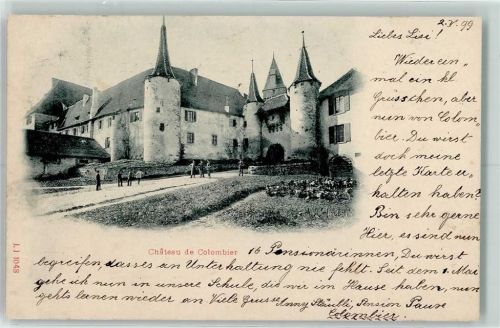 2. V. 99
Liebes Lisi!
Wieder ein-
mal ein kl
Grüsschen, aber
nun von Colom-
bier. Du wirst
doch meine
letzte Karte er-
halten haben?
Bin sehr gerne
Hier, es sind nun
Château de Colombier
16 Pensionärinnen, Du wirst
begreifen, dass es an Unterhaltung nie fehlt. Seit dem 1. Mai
gehe ich nun in unsere Schule, die wir im Hause haben, nun
gehts lernen wieder an Viele Grüsse Anny Pension
Colombier.
LI 1048